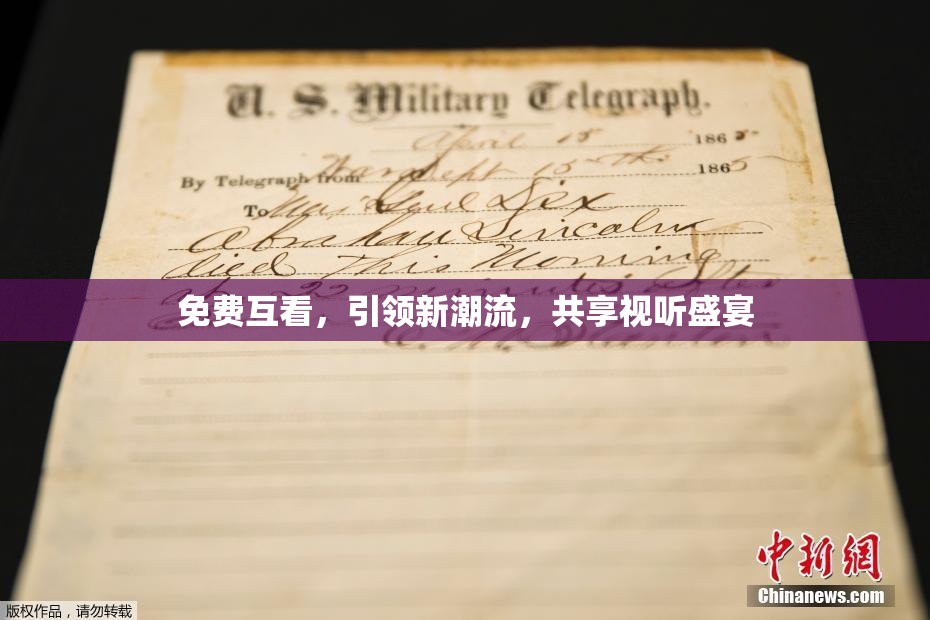 U. S. Military Telegraph.
April 15 1865
By Telegraph from War Dept 15th 1865
To Maj Genl Dix
Abraham Lincoln
died This Morning
at 22 minutes after
免费互看，引领新潮流，共享视听盛宴
E. M. Stanton
中新网
Chinanews.com
版权作品，请勿转载